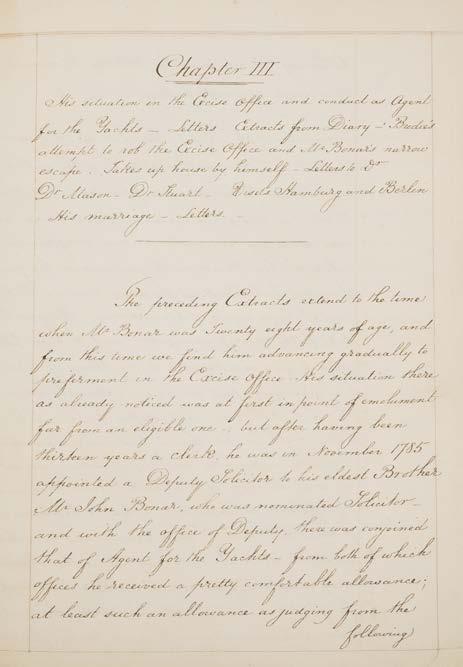 Chapter III
His situation in the Excise Office and conduct as Agent
for the Yachts – Letters Extracts from Diary – Brodie's
attempt to rob the Excise Office and Mr Bonar's narrow
escape. Takes up house by himself – Letters to Dr
Dr Mason – Dr Stuart – Visits Hamburg and Berlin
His marriage – Letters. –
The preceding Extracts extend to the time
when Mr Bonar was Twenty eight years of age, and
from this time we find him advancing gradually to
preferment in the Excise Office. His situation there
as already noticed was at first in point of emolument
far from an eligible one ; but after having been
thirteen years a clerk, he was in November 1785
appointed a Deputy Solicitor to his eldest Brother
Mr John Bonar, who was nominated Solicitor –
and with the office of Deputy, there was conjoined
that of Agent for the Yachts – from both of which
offices he received a pretty comfortable allowance ;
at least such an allowance as judging from the
following